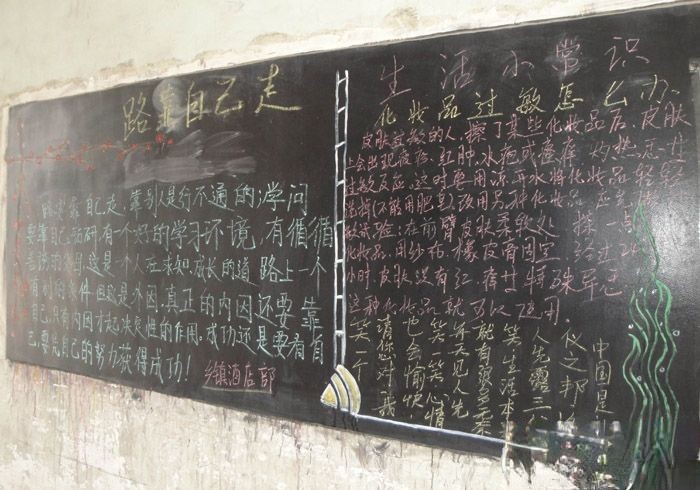 路靠自己走
靠自己走,靠别人是行不通的,学问
要靠自己钻研有一个好的学习环境 有循循
善诱的老师,这是一个人在求知、成长的道路上一个
有利的条件但这是外因,真正的内因还要靠
自己,只有内因才起决定性的作用。成功还是要看自
己,要凭自己的努力获得成功!
乡镇酒店部
生活小常识
化妆品过敏怎么办
皮肤过敏的人,擦了某些化妆品后,皮肤
上会出现 红肿、水疱或瘙痒 灼热
过敏反应。这时要用凉开水将化妆品轻轻
洗掉(不能用肥皂)改用另种化妆品 应先
做试验:在前臂皮肤柔软处 擦一点
化妆品,用纱布、橡皮膏固定 经过
小时,皮肤没有红、痒 特殊异
这种化妆品就可以使用。
中国是
仪之邦
人先露三
笑 生活本来
就有很多无奈
每天见人先
笑一笑心情
也会愉快
请您对我
笑一个